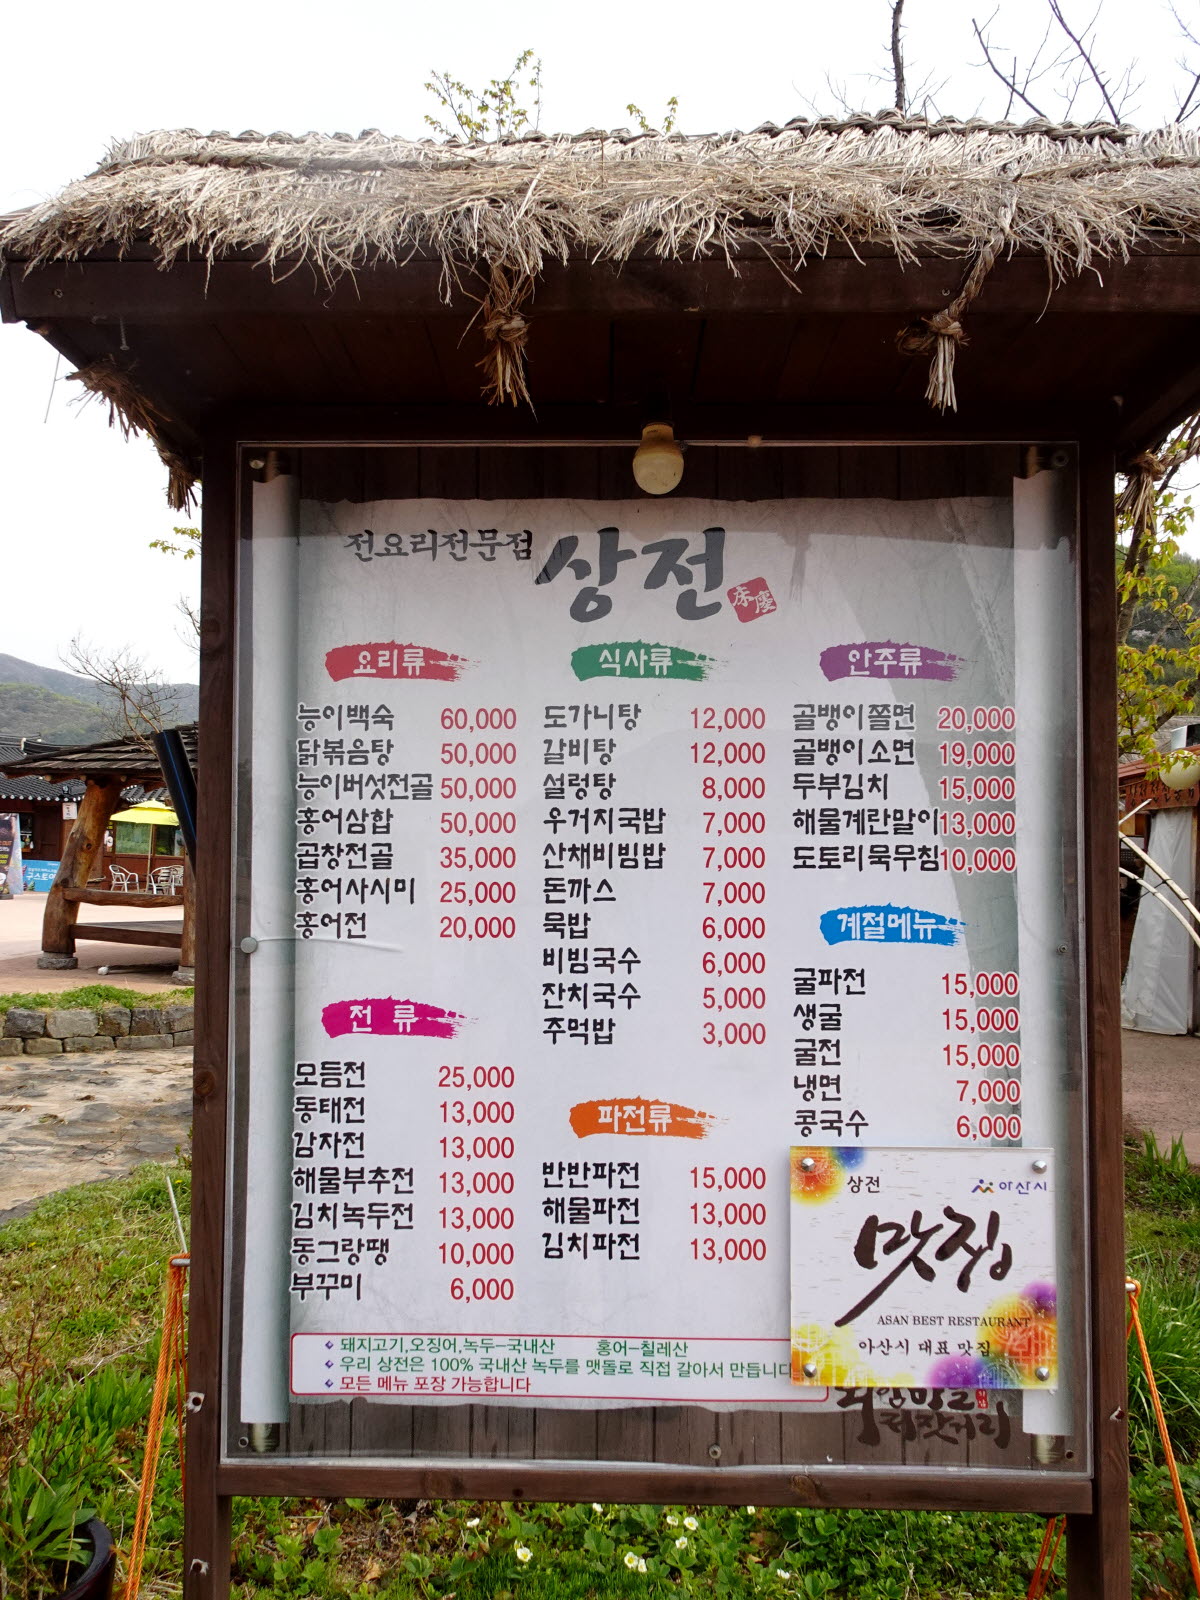 전요리전문점 상전
床廛
요리류
능이백숙 60,000
닭볶음탕 50,000
능이버섯전골 50,000
홍어삼합 50,000
곱창전골 35,000
홍어사시미 25,000
홍어전 20,000
전 류
모듬전 25,000
동태전 13,000
감자전 13,000
해물부추전 13,000
김치녹두전 13,000
동그랑땡 10,000
부꾸미 6,000
식사류
도가니탕 12,000
갈비탕 12,000
설렁탕 8,000
우거지국밥 7,000
산채비빔밥 7,000
돈까스 7,000
묵밥 6,000
비빔국수 6,000
잔치국수 5,000
주먹밥 3,000
파전류
반반파전 15,000
해물파전 13,000
김치파전 13,000
안주류
골뱅이쫄면 20,000
골뱅이소면 19,000
두부김치 15,000
해물계란말이 13,000
도토리묵무침 10,000
계절메뉴
굴파전 15,000
생굴 15,000
굴전 15,000
냉면 7,000
콩국수 6,000
돼지고기,오징어,녹두-국내산 홍어-칠레산
우리 상전은 100% 국내산 녹두를 맷돌로 직접 갈아서 만듭니다
모든 메뉴 포장 가능합니다
상전 아산시
맛집
ASAN BEST RESTAURANT
아산시 대표 맛집
저잣거리